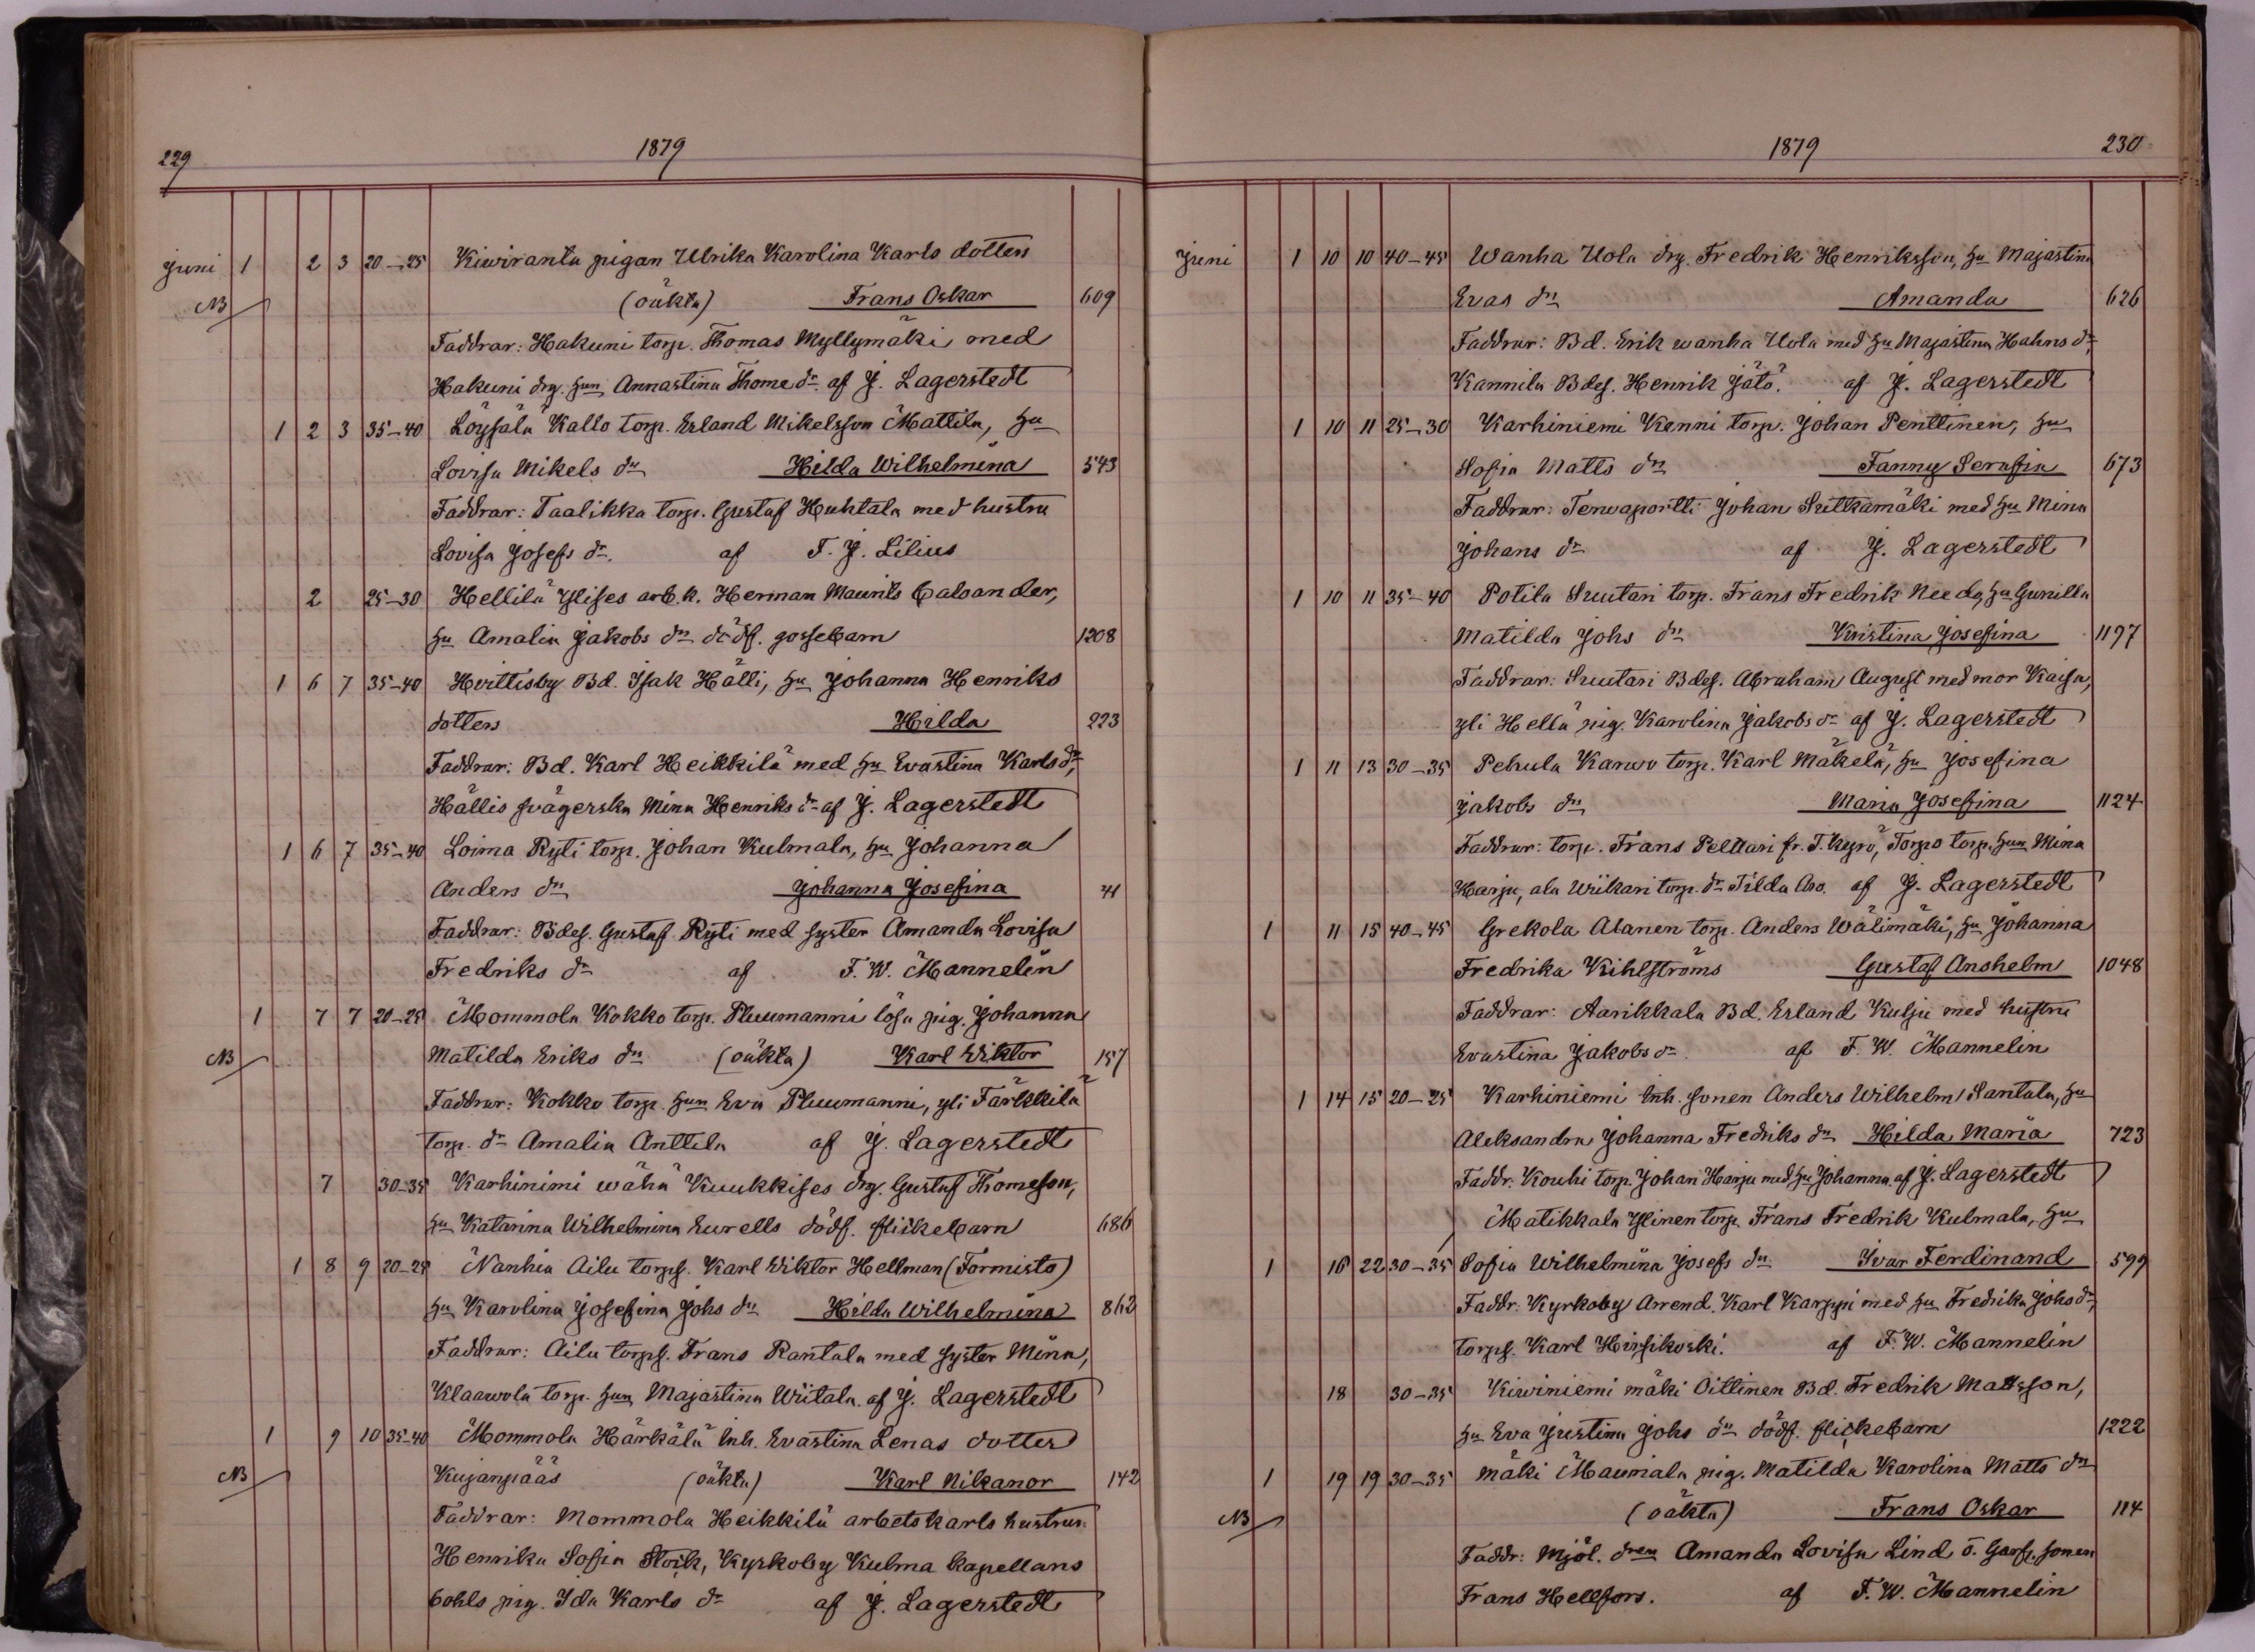 229
1879
Juni 1 2 3 20-25 Kiwiranta pigan Ulrika Karolina Karls dotters
NB (oäkta) Frans Oskar 609
Faddrar: Hakuni torp. Thomas Myllymäki med
Hakuni drg. hun Annastina Thome dr af J. Lagerstedt
1 2 3 35-40 Löysälä Kallo torp. Erland Mikelsson Mattila, hu
Lovisa Mikels dn Hilda Wilhelmina 543
Faddrar: Taalikka torp. Gustaf Huhtala med hustru
Lovisa Josefs dr. af F. J. Lilius
2 25-30 Hellilä Ylises arb.k. Herman Maurits Caloander,
hu Amalia Jakobs dn dödf. gossebarn 1208
1 6 7 35-40 Hvittisby Bd. Isak Hälli, hu Johanna Henriks
dotters Hilda 223
Faddrar: Bd. Karl Heikkilä med hu Evastina Karls dr,
Hällis svägerska Mina Henriks dr af J. Lagerstedt
1 6 7 35-40 Loima Ryti torp. Johan Kulmala, hu Johanna
Anders dn Johanna Josefina 41
Faddrar: Bdes. Gustaf Ryti med syster Amanda Lovisa
Fredriks dr af F. W. Mannelin
1 7 7 20-25 Mommola Kokko torp. Pluumanni lösa pig. Johanna
NB Matilda Eriks dn (oäkta) Karl Wiktor 157
Faddrar: Kokko torp. hun Eva Pluumanni, yli Färkkilä
torp. dr Amalia Anttila af J. Lagerstedt
7 30-35 Karhinimi wähä Kuukkises drg. Gustaf Thomeson,
hu Katarina Wilhelmina Eurells dödf. flickebarn 686
1 8 9 20-25 Nanhia Ailu torps. Karl Wiktor Hellman (Formisto)
hu Karolina Josefina Johs dn Hilda Wilhelmina 862
Faddrar: Ailu torps. Frans Rantala med syster Mina,
Klaawola torp. hun Majastina Wiitala. af J. Lagerstedt
1 9 10 35-40 Mommola Härkälä inh. Evastina Lenas dotter
NB Kujanpääs (oäkta) Karl Nikanor 142
Faddrar: Mommola Heikkilä arbetskarls hustrun
Henrika Sofia Stoik, Kyrkoby Kulma kapellans
Cohls pig. Ida Karls dr af J. Lagerstedt
1879
230
Juni 1 10 10 40-45 Wanha Uola drg. Fredrik Henriksson, hu Majastina
Evas dn Amanda 626
Faddrar: Bd. Erik wanha Uola med hu Majastina Hahns dr,
Kannila Bdes. Henrik Jätö. af J. Lagerstedt
1 10 11 25-30 Karhiniemi Kenni torp. Johan Penttinen, hu
Sofia Matts dn Fanny Serafia 673
Faddrar: Terwaportti Johan Sutkamäki med hu Mina
Johans dr af J. Lagerstedt
1 10 11 35-40 Potila Suutari torp. Frans Fredrik Needo, hu Gunilla
Matilda Johs dn Kristina Josefina 1197
Faddrar: Suutari Bdes. Abraham August med mor Kaisa,
yli Hellä pig. Karolina Jakobs dr af J. Lagerstedt
1 11 13 30-35 Pehula Karwo torp. Karl Mäkelä, hu Josefina
Jakobs dn Maria Josefina 1124
Faddrar: torp. Frans Pelttari fr. T. Kyrö, Torpo torp. hun Mina
Harju, ala Wiikari torp. dr Tilda Aro. af J. Lagerstedt
1 11 15 40-45 Grekola Alanen torp. Anders Wälimäki, hu Johanna
Fredrika Kihlströms Gustaf Anshelm 1048
Faddrar: Aarikkala Bd. Erland Kulju med hustru
Evastina Jakobs dr. af F. W. Mannelin
1 14 15 20-25 Karhiniemi inh. sonen Anders Wilhelm Santala, hu
Aleksandra Johanna Fredriks dn Hilda Maria 723
Faddr. Kouhi torp. Johan Harju med hu Johanna. af J. Lagerstedt
Matikkala Ylinen torp. Frans Fredrik Kulmala, hu
1 16 22 30-35 Sofia Wilhelmina Josefs dn Ivar Ferdinand 599
Faddr. Kyrkoby Arrend. Karl Karppi med hu Fredrika Johs dr,
torps. Karl Hirsikoski. af F. W. Mannelin
18 30-35 Kiwiniemi mäki Oittinen Bd. Fredrik Mattsson,
hu Eva Justina Johs dn dödf. flickebarn 1222
1 19 19 30-35 Mäki Mauriala pig. Matilda Karolina Matts dn
NB (oäkta) Frans Oskar 114
Faddr: Mjöl. dren Amanda Lovisa Lind o. Garf. sonen
Frans Hellfors. af F. W. Mannelin